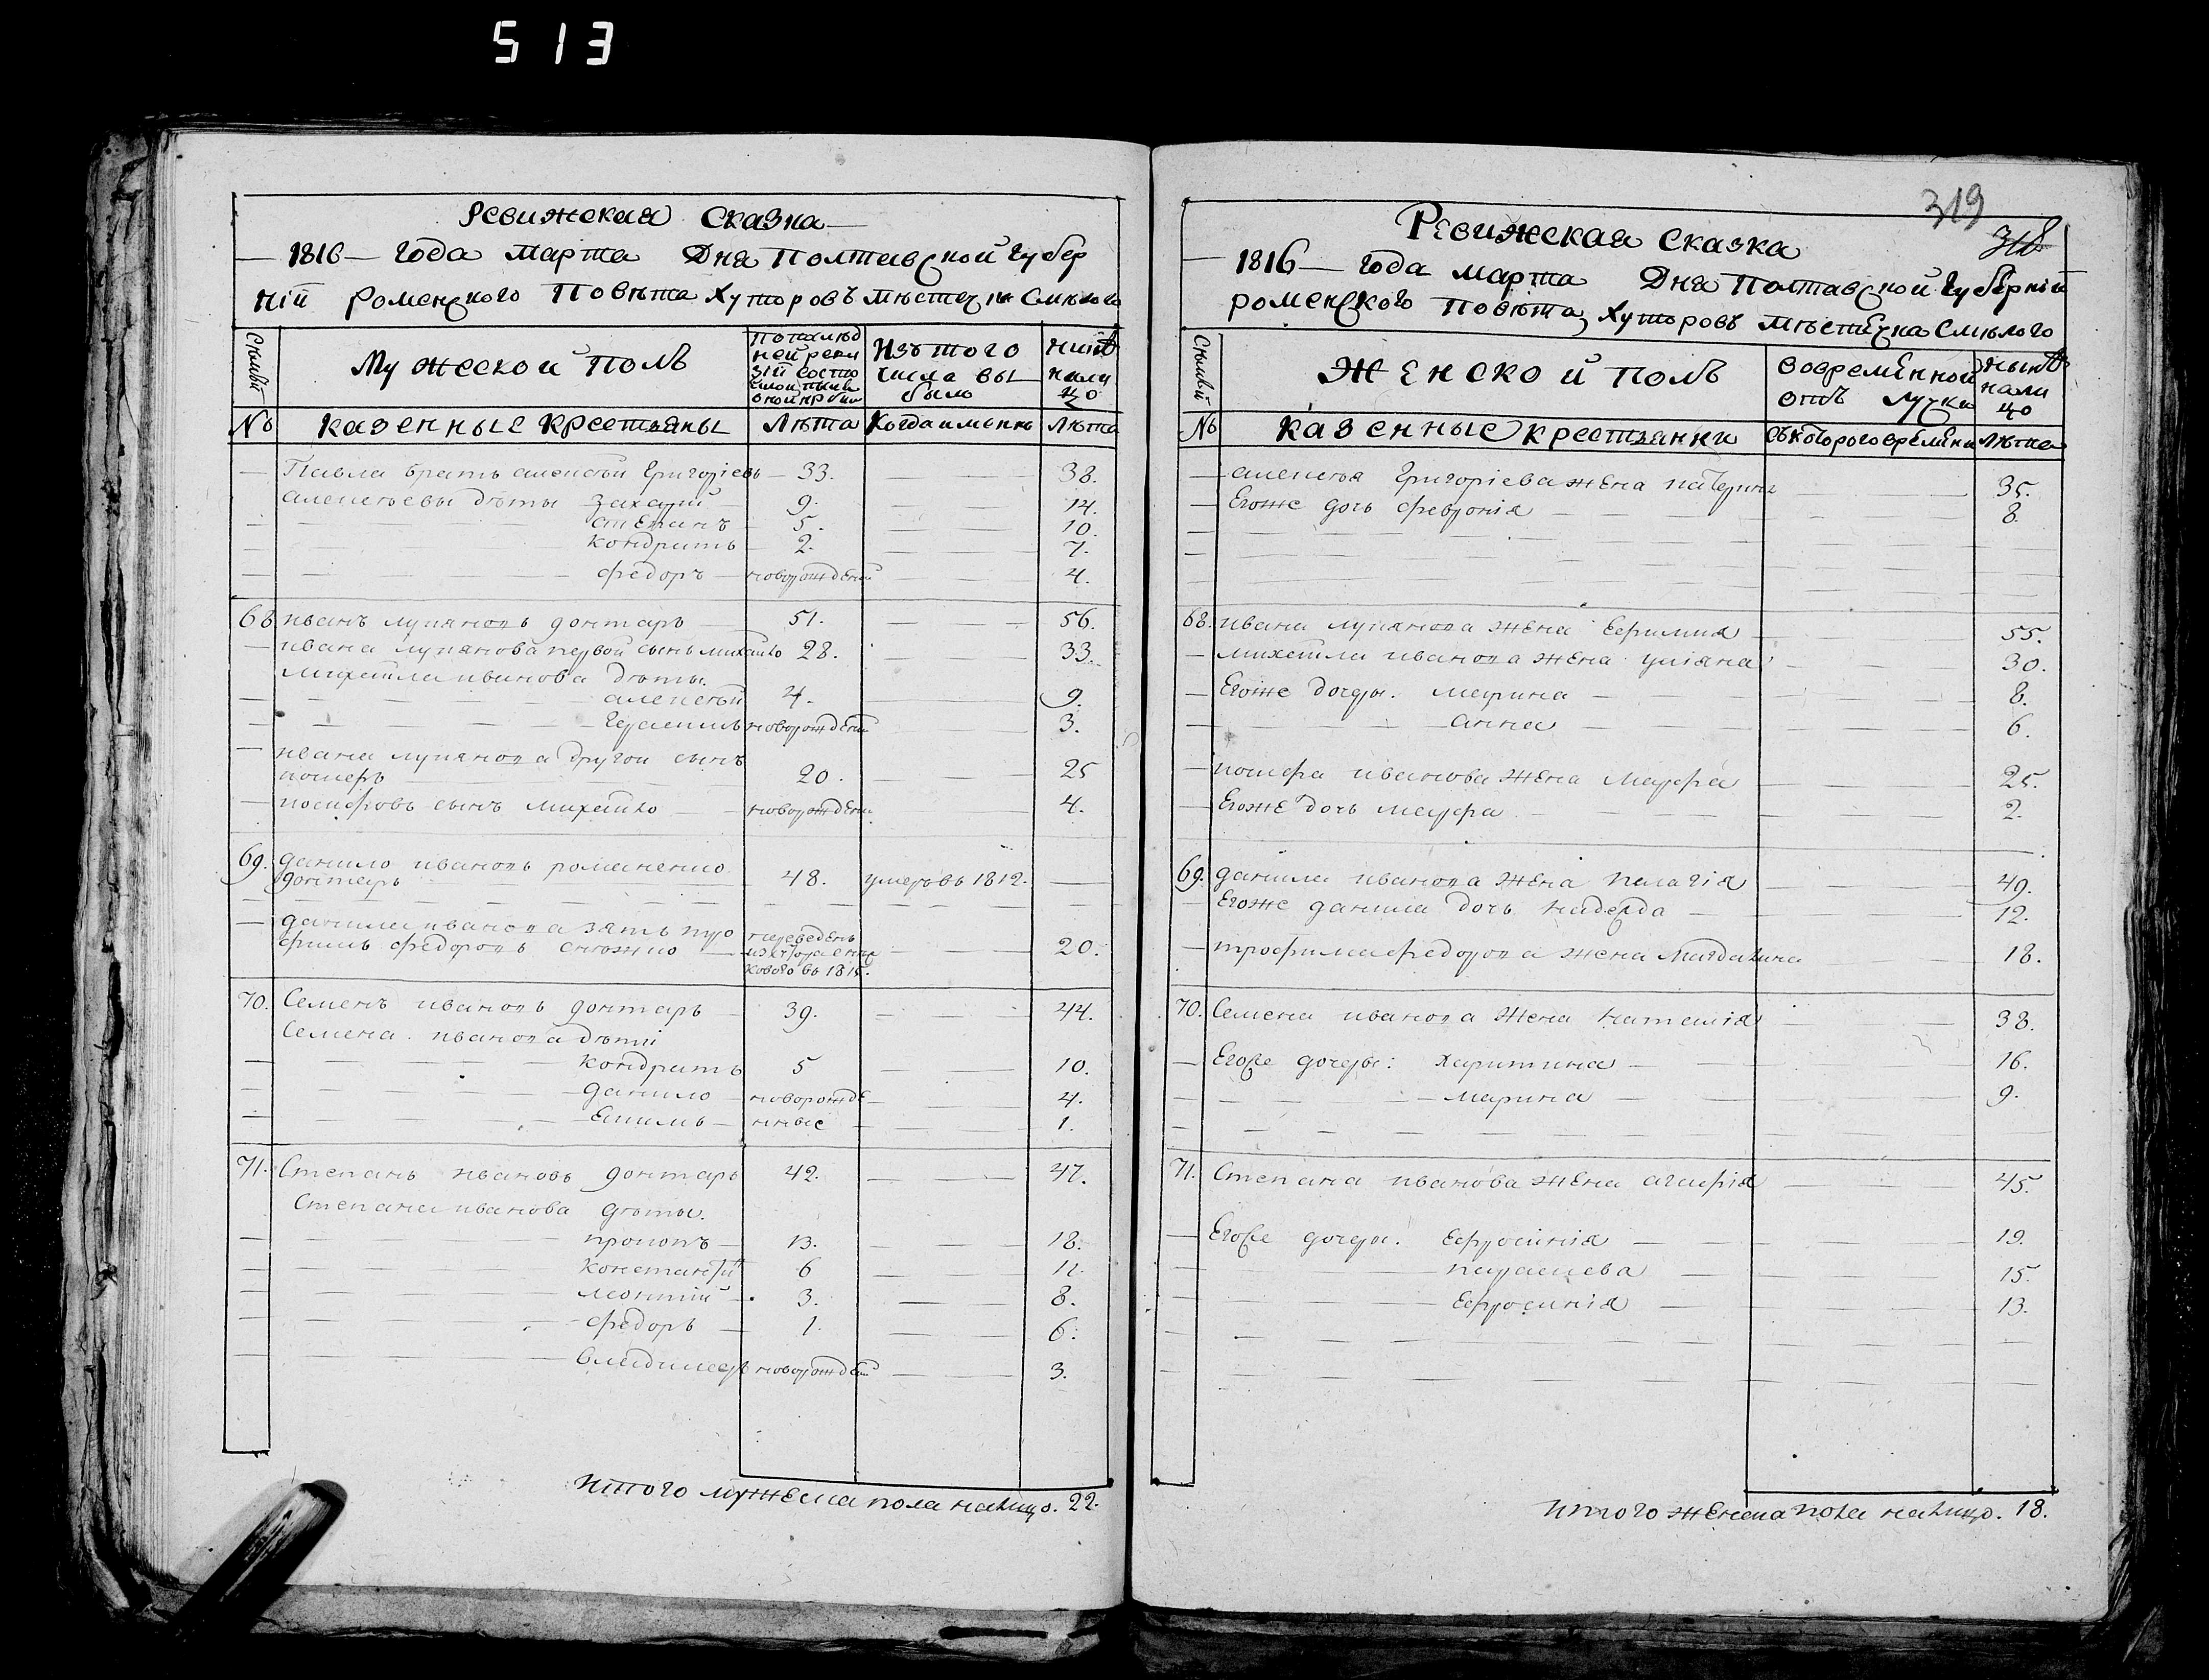 513
Ревижская Сказка
1816 года марта Дня Полтавской Губер
ніи роменского Повѣта Хуторовъ мѣстечка Смѣлого
Мужеской полъ
Изъ того
числа вы
было
нали
цо
№
казенные крестьяны
Лѣта
Когда именно
Лѣта
Павла братъ алексѣй Григоріевъ 33. 38.
алексѣевы дѣты Захарій 9. 14.
степанъ 5. 10.
кондратъ 2. 7.
федоръ новорожденій 4.
68 иванъ лукяновъ донтаръ 51. 56.
ивана лукянова первой сынъ михайло 28. 33.
михайла иванова дѣты.
алексѣй 4. 9.
герасимъ новорожденій 3.
ивана лукянова другой сынъ
иосифъ 20. 25
иосифовъ сынъ михайло новорожденій 4.
69. данило ивановъ романенко
донтаръ 48. умеръ въ 1812.
данила иванова зять тро
фимъ федоровъ 20.
переведенъ
въ 1815.
70. Семенъ ивановъ донтаръ 39. 44.
Семена иванова дѣти
кондратъ 5 10.
данило новорожде 4.
Екимъ нные 1.
71. Степанъ ивановъ донтаръ 42. 47.
Степана иванова дѣты.
прокопъ 13. 18.
константій 6 11.
леонтій 3. 8.
федоръ 1. 6.
владимеръ новорожденій 3.
Итого мужеска пола налицо. 22.
319
318
Ревижская Сказка
1816 года марта Дня Полтавской Губерніи
роменского Повѣта, Хуторовъ мѣстечка Смѣлого
Женской полъ
Вовременной
отлучки
нынѣ
нали
цо
№
казенные крестьянки
Съ которого времени
Лѣта
алексѣя Григоріева жена катерина 35.
Егоже дочь феврония 8.
68. ивана лукянова жена Евфимия 55.
михайла иванова жена уліяна 30.
Егоже дочеры. марина 8.
анна 6.
иосифа иванова жена мауфра 25.
Егоже дочь мауфра 2.
69. данила иванова жена пелагія 49.
Егоже данила дочь надежда 12.
трофима федорова жена магдалина 18.
70. Семена иванова жена наталія 38.
Егоже дочеры: харитина 16.
марина 9.
71. Степана иванова жена агафія 45.
Егоже дочеры. Ефросинія 19.
параскева 15.
Ефросинія 13.
Итого женска пола налицо. 18.